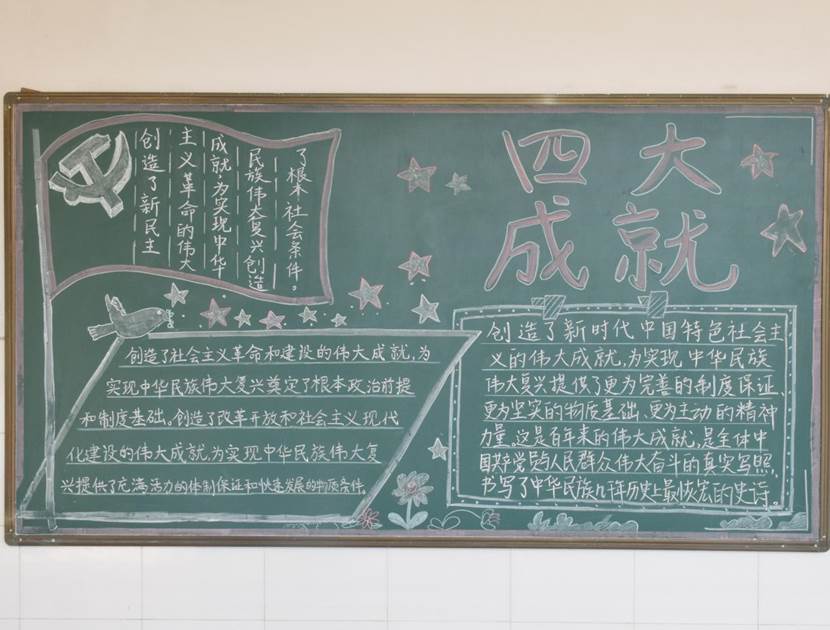 四大
成就
创造了新民主
主义革命的伟大
成就,为实现中华
民族伟大复兴创造
了根本社会条件。
创造了社会主义革命和建设的伟大成就,为
实现中华民族伟大复兴奠定了根本政治前提
和制度基础。创造了改革开放和社会主义现代
化建设的伟大成就,为实现中华民族伟大复
兴提供了充满活力的体制保证和快速发展的物质条件。
创造了新时代中国特色社会主
义的伟大成就,为实现中华民族
伟大复兴提供了更为完善的制度保证、
更为坚实的物质基础、更为主动的精神
力量。这是百年来的伟大成就,是全体中
国共产党与人民群众伟大奋斗的真实写照,
书写了中华民族几千年历史上最恢宏的史诗。